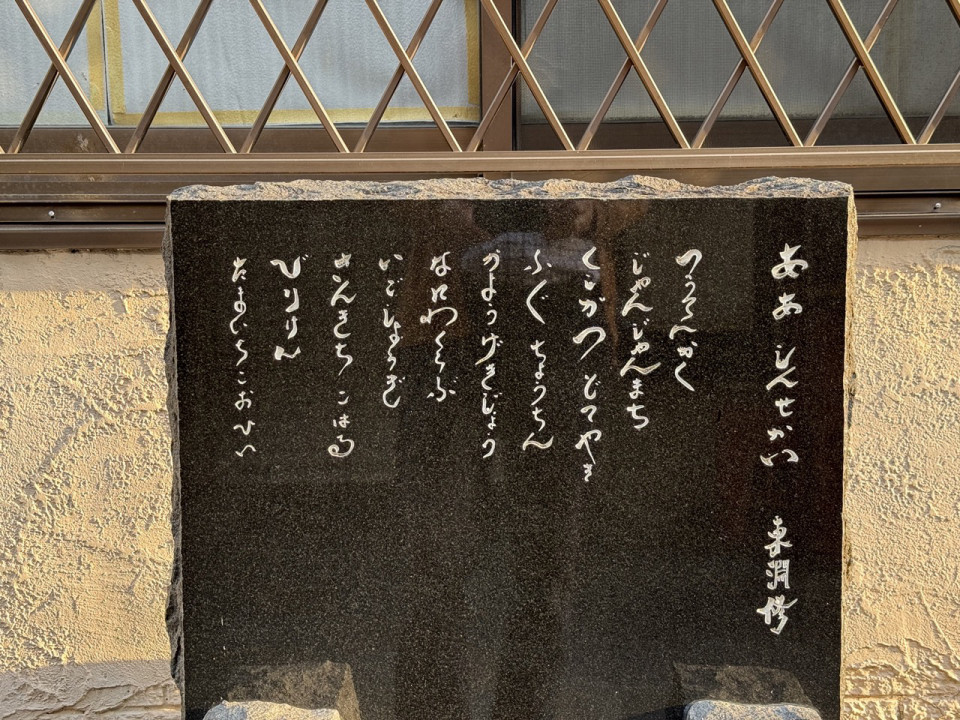 ああ しんせかい 東淵修
つうてんかく
じゃんじゃんまち
くしかつ どてやき
ふぐ ちょうちん
かようげきじょう
なにわくらぶ
いごしょうぎ
さんきち こはる
びりけん
たまのいちこおひい